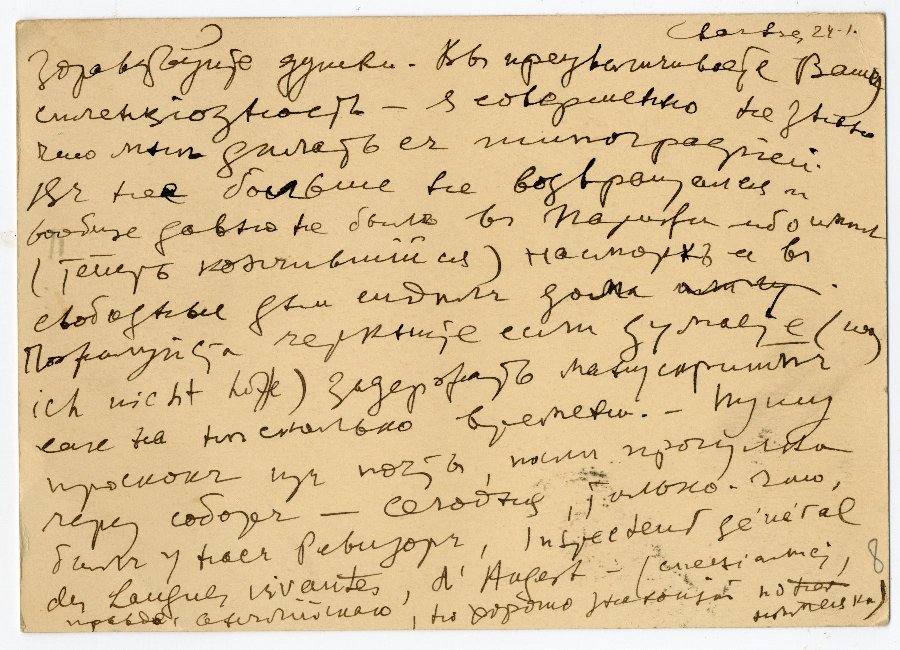 Chartres, 24-1.
Здравствуйте душеньки. Вы преувеличиваете Вашу
силенціозность — я совершенно не знаю
что мнѣ дѣлать съ типографіей.
Въ нее больше не возвращался и
вообще давно не былъ въ Парижѣ ибо имѣлъ
(теперь кончившійся) насморкъ и въ
свободные дни сидѣлъ дома
Пожалуйста черкните если думаете (was
ich nicht hoffe) задержать манускриптъ
еще на нѣсколько времени. — Пишу
проскокъ на почту, послѣ прогулки
через соборъ — Сегодня, только-что,
былъ у насъ Ревизоръ, Inspecteur général
des Langues vivantes, d'Hugert — (спеціалистъ,
правда, английскаго, но хорошо знающій
8